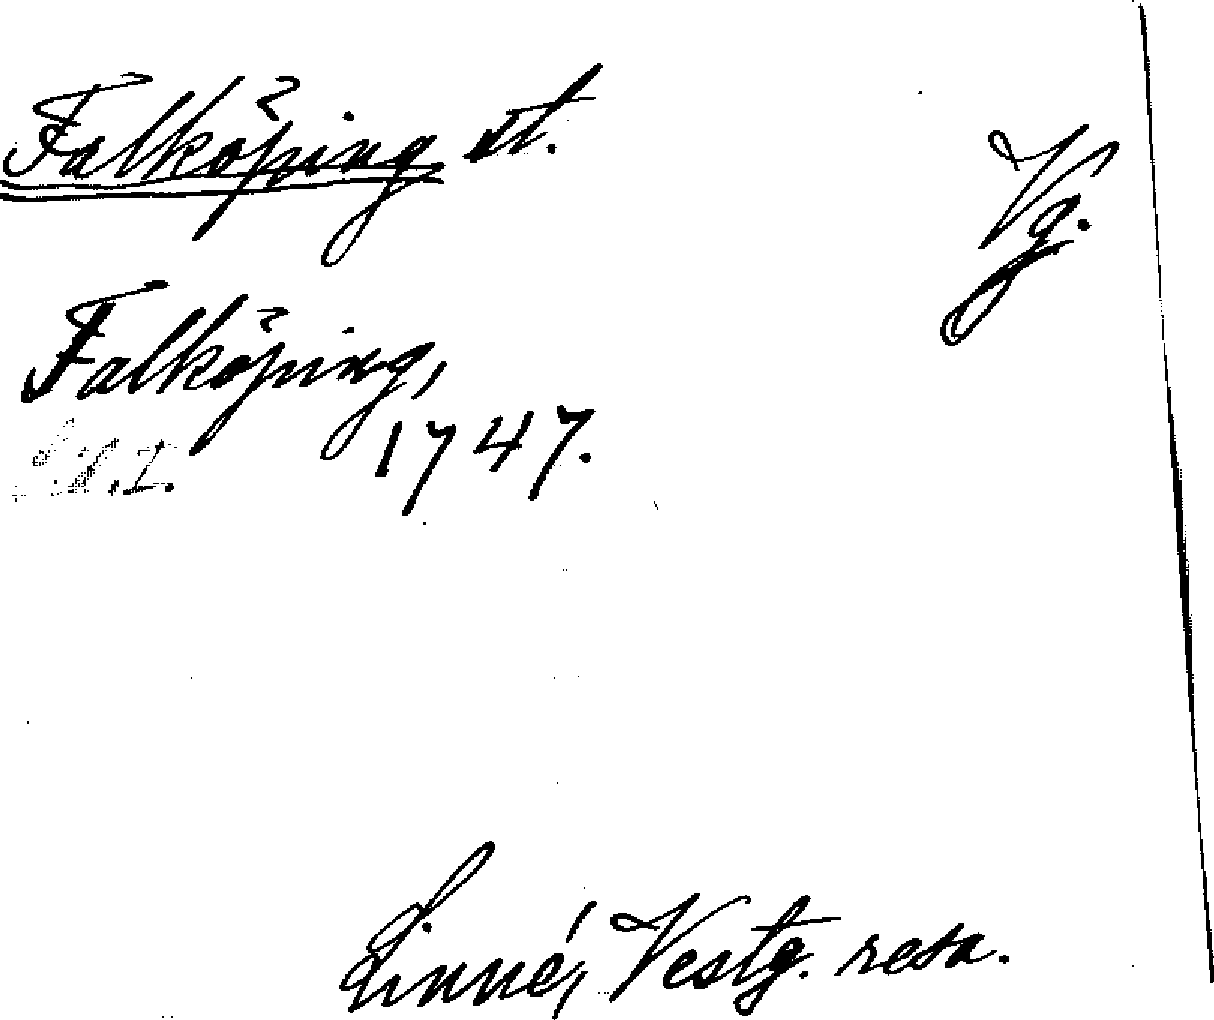 Falköping st.
Vg.
Falköping,
1747.
Linné, Vestg. resa.